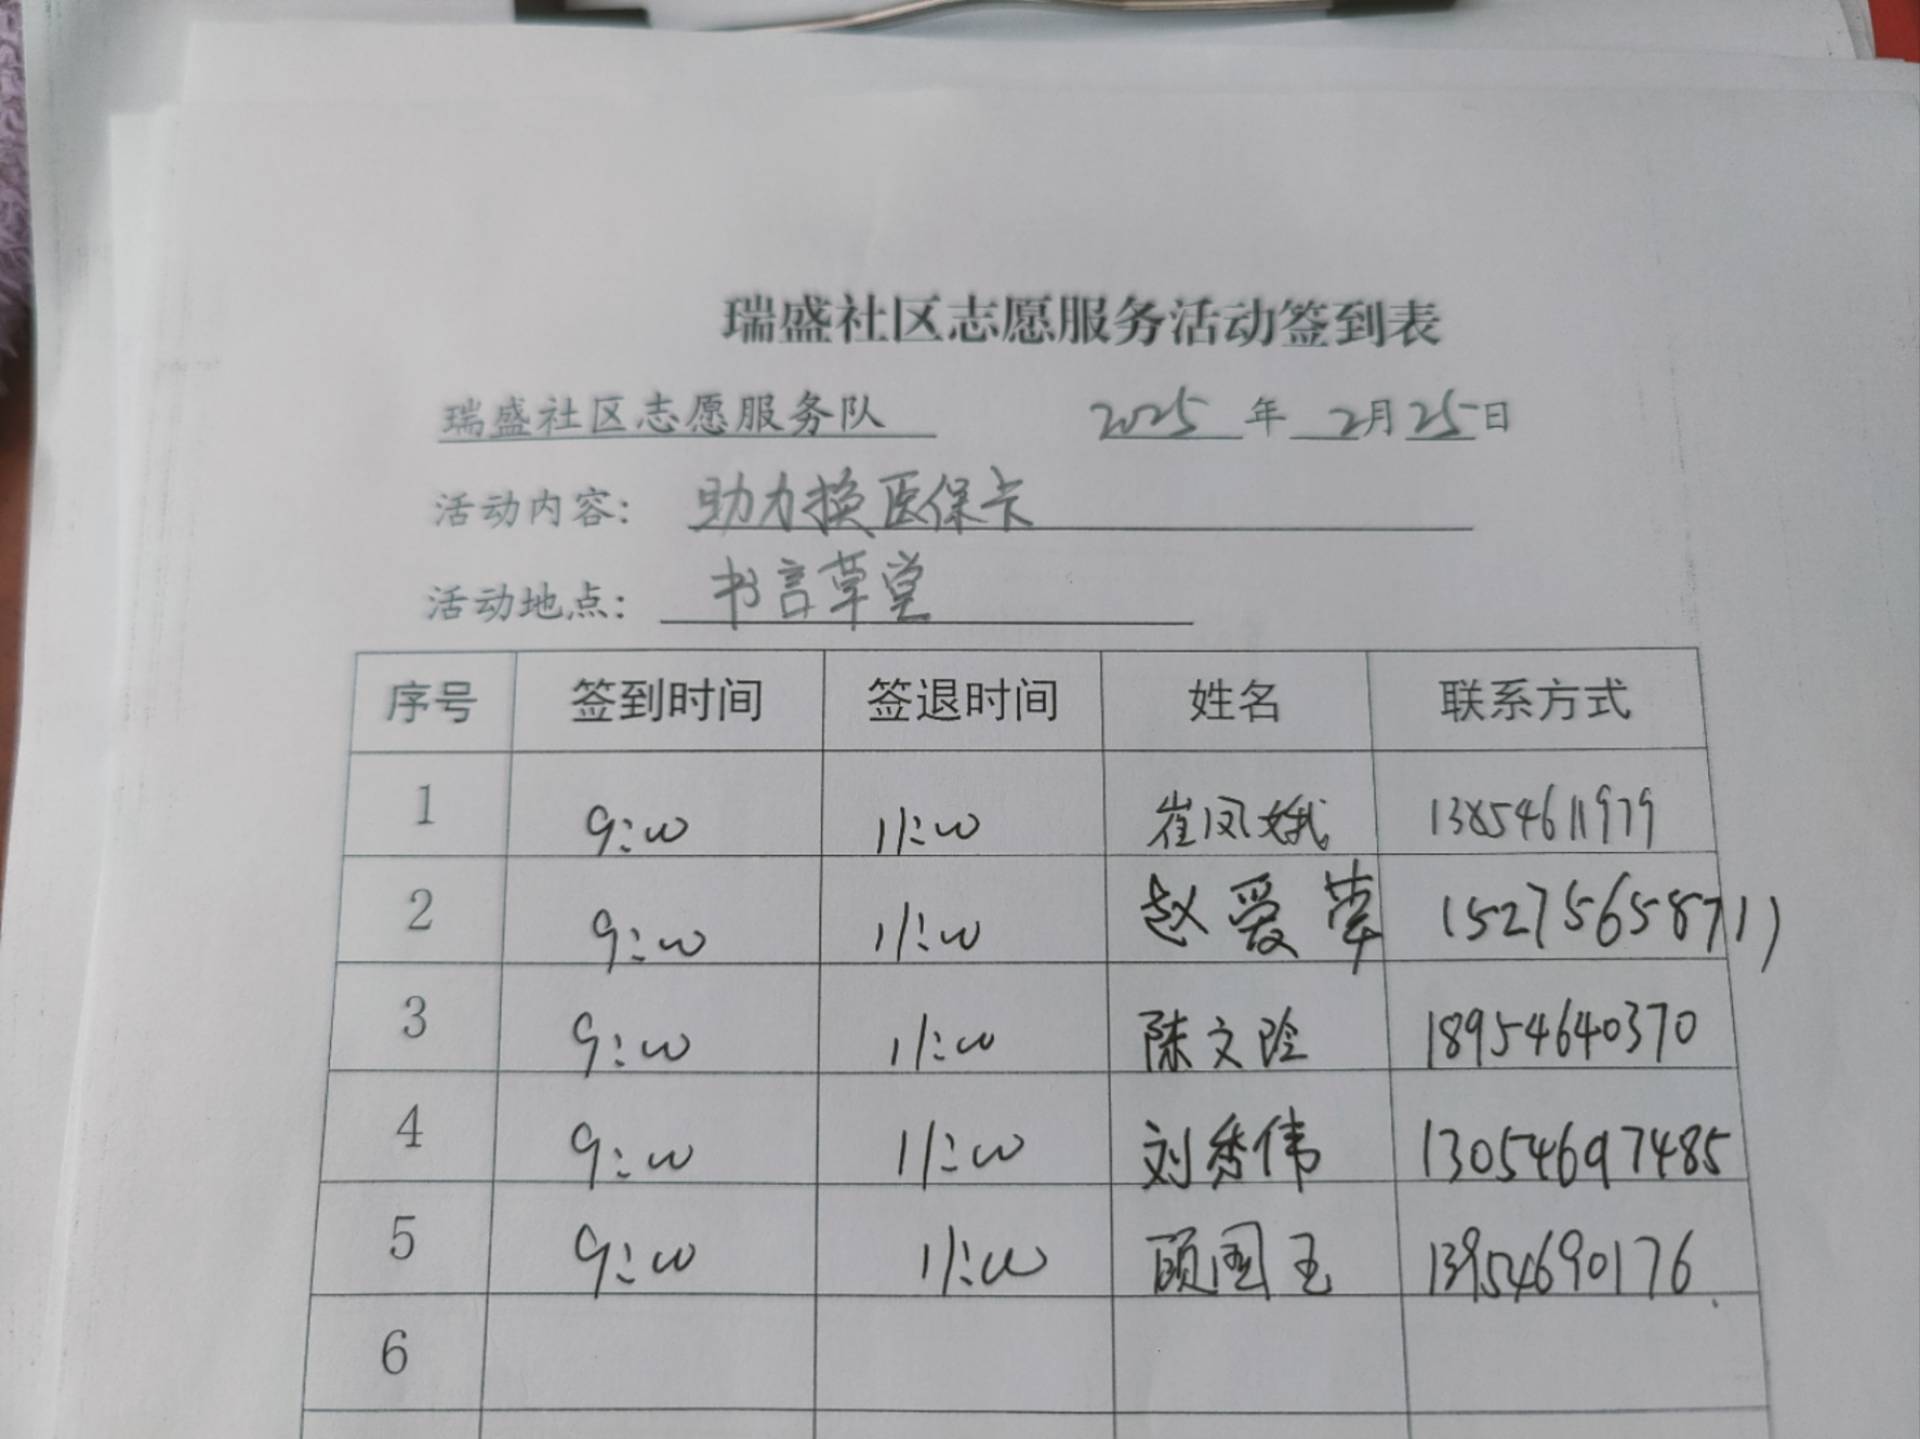 瑞盛社区志愿服务活动签到表
瑞盛社区志愿服务队 2025 年 2月 25日
活动内容: 助力换医保卡
活动地点: 书言草堂
序号 签到时间 签退时间 姓名 联系方式
1 9:00 11:00 崔凤娥 13854611979
2 9:00 11:00 赵爱苹 15275658711
3 9:00 11:00 陈文玲 18954640370
4 9:00 11:00 刘秀伟 13054697485
5 9:00 11:00 顾国玉 13954690176
6